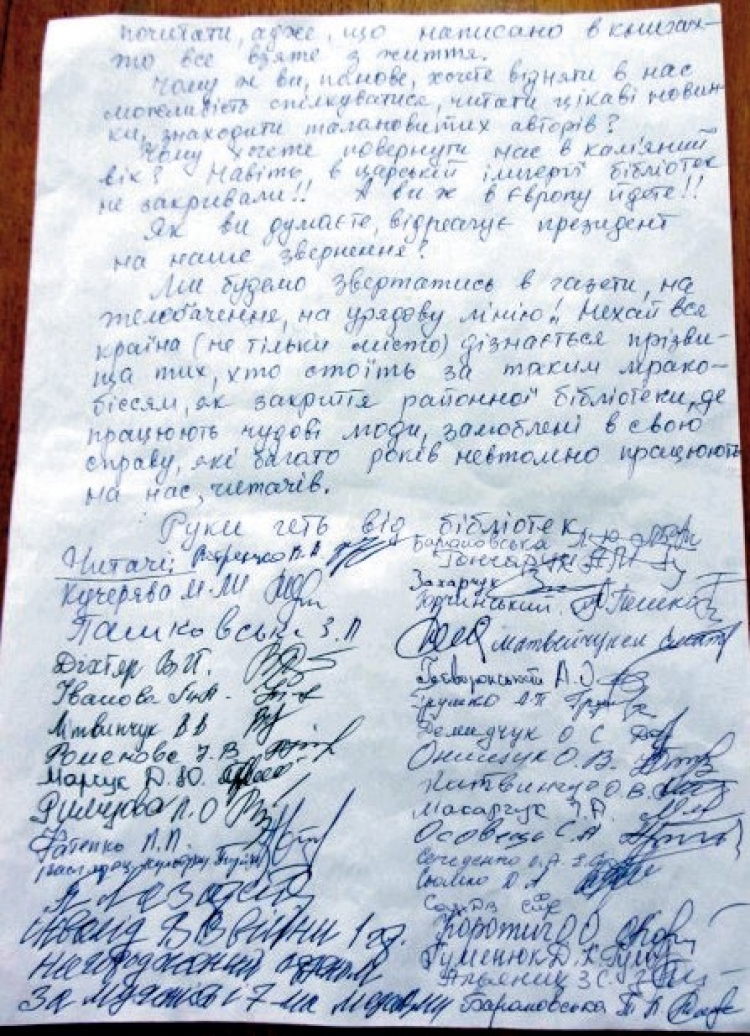 почитати, адже, що написано в книгах-
то все взяте з життя.
Чому ж ви, панове, хочете відняти в нас
можливість спілкуватися, читати цікаві новин-
ки, знаходити талановитих авторів?
Чому хочете повернути нас в кам'яний
вік? Навіть в царській імперії бібліотек
не закривали!! А ви ж в Європу йдете!!
Як ви думаєте, відреагує президент
на наше звернення?
Ми будемо звертатись в газети, на
телебачення, на урядову лінію! Нехай вся
країна (не тільки місто) дізнається прізви-
ща тих, хто стоїть за таким мрако-
біссям, як закриття районної бібліотеки, де
працюють чудові люди, залюблені в свою
справу, які багато років невтомно працюють
на нас, читачів.
Руки геть від бібліотек
Читачі:
Кучерява М.М
Пашковська З.П
Діхтяр В.П.
Іванова Г.А.
Літвинчук В В
Романова
Марчук Д.Ю.
Римчова Л.О
Фатенко Л.П.
інвалід ВВ війни 1 гр.
нагороджений
за мужність і 7-ма
Барановська
Гончарук
Захарчук
Кучинський
Матвейчук
Яворонський А.О
Грушко
Демидчук О С
Онищук О.В.
Литвинчук О.В.
Макарчук
Осовець С.А
Коротич О О
Гуменюк Д.К.
З.С.
Барановська Т Л